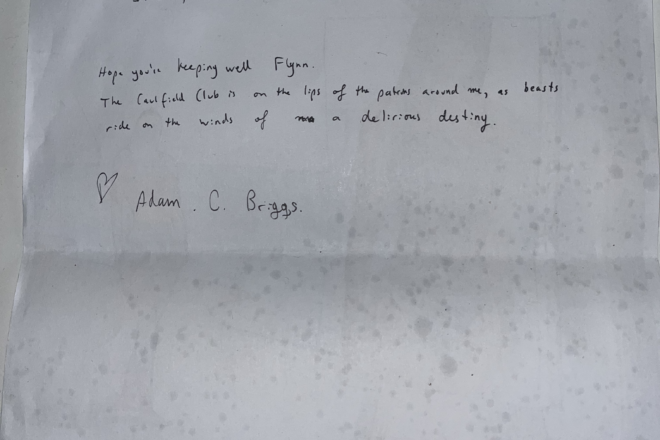 Hope you're keeping well Flynn.
The Caulfield Club is on the lips of the patrons around me, as beasts
ride on the winds of a delirious destiny.
Adam. C. Briggs.